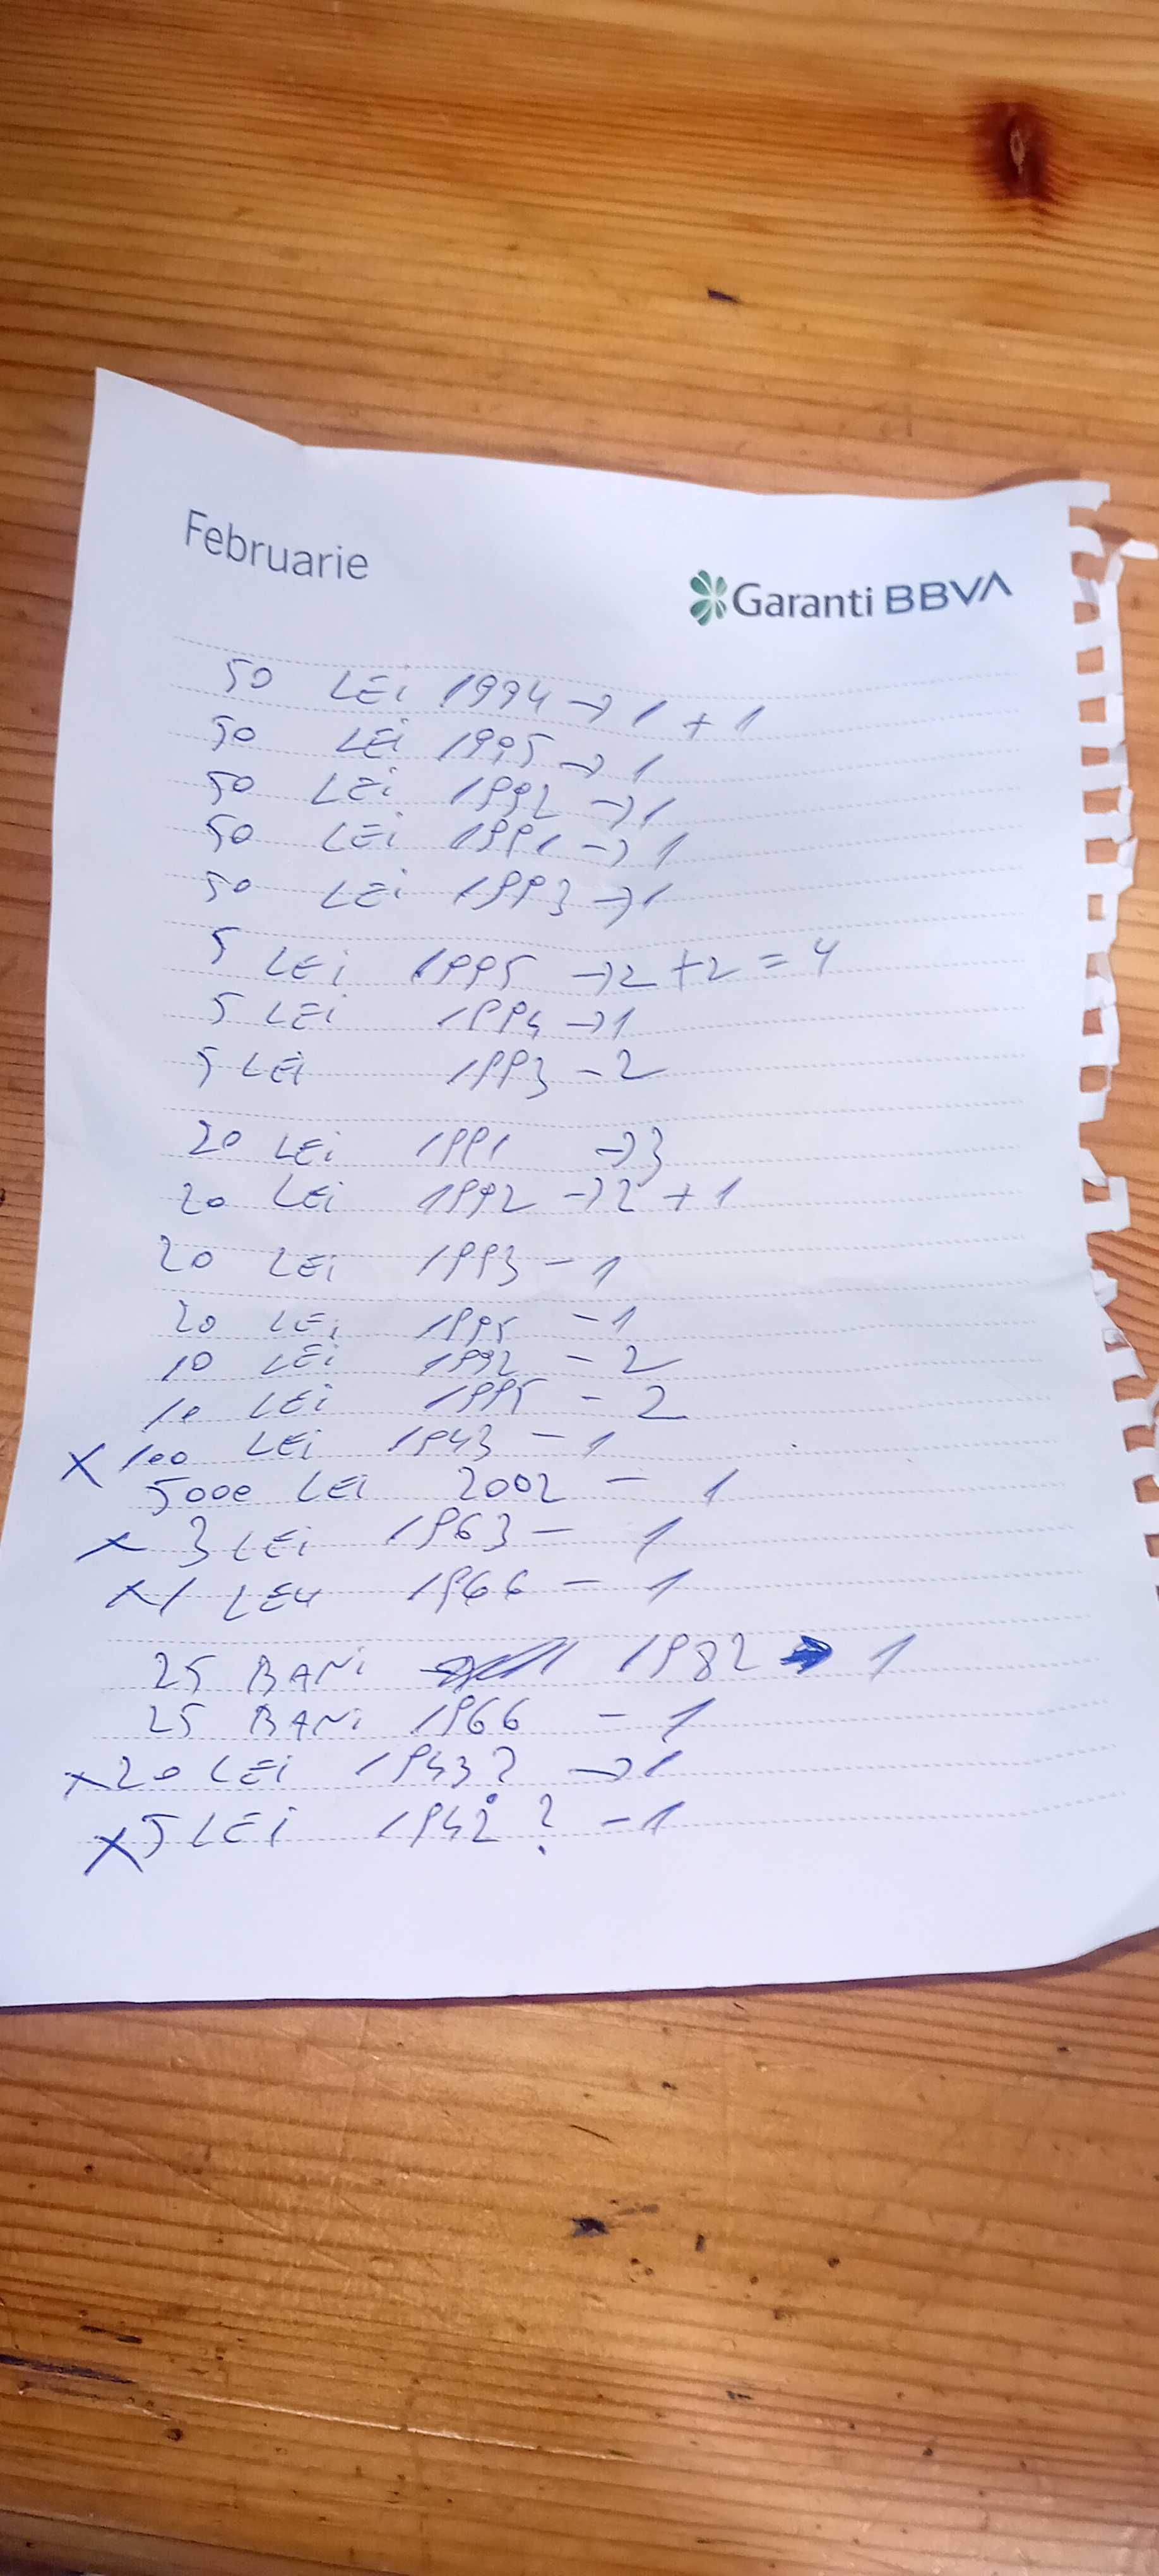 Februarie
Garanti BBVA
50 LEi 1994 → 1 + 1
50 LEi 1995 → 1
50 LEi 1992 → 1
50 LEi 1991 → 1
50 LEi 1993 → 1
5 LEi 1995 → 2 + 2 = 4
5 LEi 1994 → 1
5 LEi 1993 - 2
20 LEi 1991 → 3
20 LEi 1992 → 2 + 1
20 LEi 1993 - 1
20 LEi 1995 - 1
10 LEi 1992 - 2
10 LEi 1995 - 2
X 100 LEi 1943 - 1
5000 LEi 2002 - 1
X 3 LEi 1963 - 1
X 1 LEU 1966 - 1
25 BANi 1982 → 1
25 BANi 1966 - 1
X 20 LEi 1943? → 1
X 5 LEi 1942 ? - 1